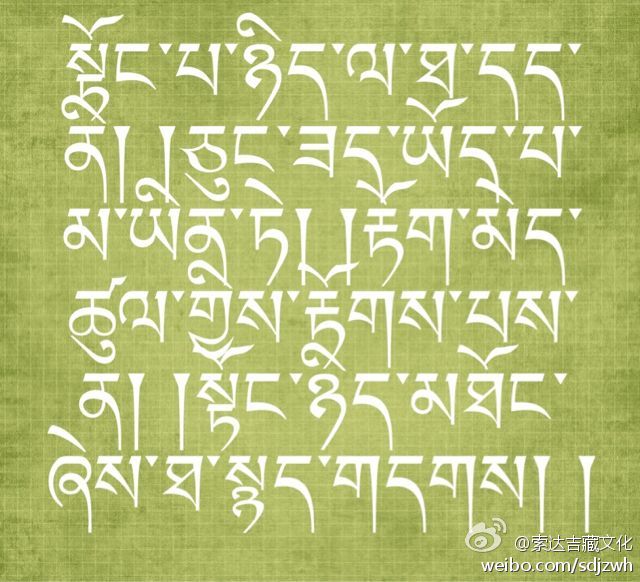 སྟོང་པ་ཉིད་ལ་ཐ་དད་
ནི། །ཅུང་ཟད་ཡོད་པ་
མ་ཡིན་ཏེ། །རྟོག་མེད་
ཚུལ་གྱིས་རྟོགས་པས་
ན། །སྟོང་ཉིད་མཐོང་
ཞེས་ཐ་སྙད་གདགས། །
@索达吉藏文化
weibo.com/sdjzwh